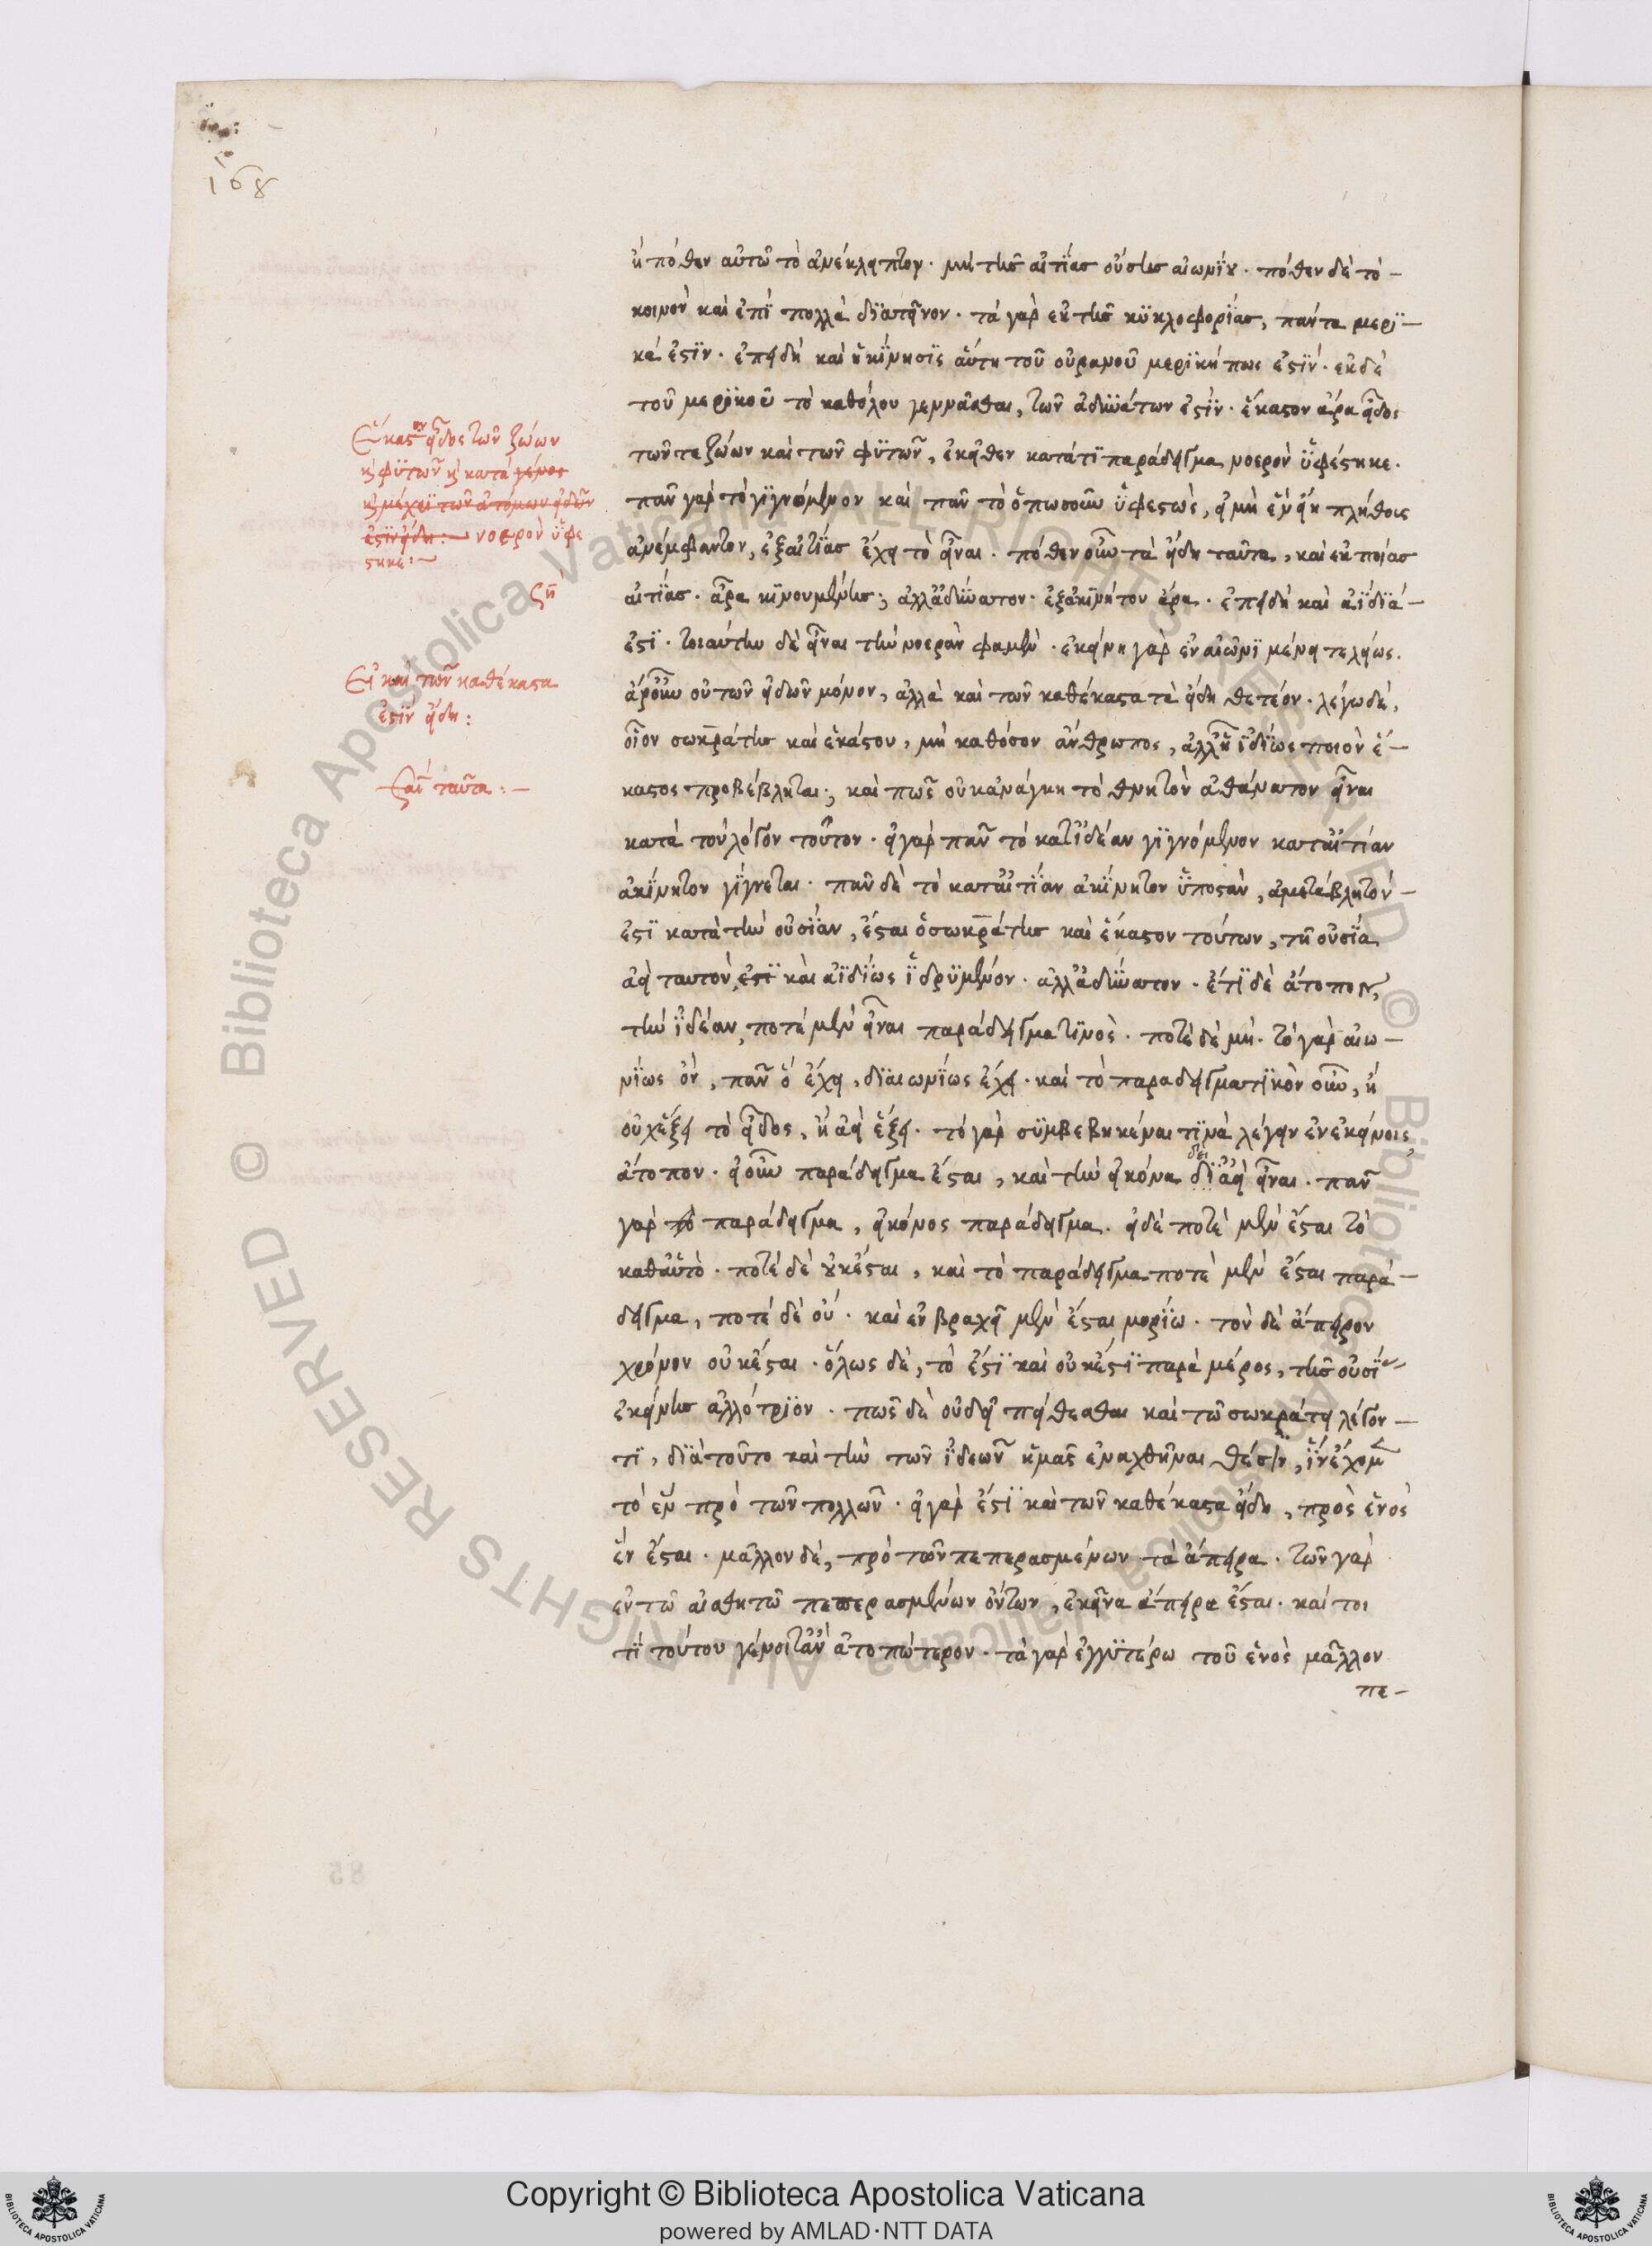 168
ἢ πόθεν αὐτῶ τὸ ἀνέκλειπτον. μὴ τῆς αἰτίας οὔσης αἰωνίου. πόθεν δὲ τὸ
κοινὸν καὶ ἐπὶ πολλὰ διατεῖνον. τὰ γὰρ ἐκ τῆς κυκλοφορίας, πάντα μερι-
κά ἐστιν. ἐπειδὴ καὶ ἡ κίνησις αὕτη τοῦ οὐρανοῦ μερική πως ἐστίν. ἐκ δὲ
τοῦ μερικοῦ τὸ καθόλου γεννᾶσθαι, τῶν ἀδυνάτων ἐστίν. ἕκαστον ἄρα εἶδος
τῶν τε ζώων καὶ τῶν φυτῶν, ἐκεῖθεν κατά τι παράδειγμα νοερὸν ὑφέστηκε.
πᾶν γὰρ τὸ γιγνόμενον καὶ πᾶν τὸ ὁπωσοῦν ὑφεστὼς, εἰ μὴ ἓν εἴη πλήθους
ἀνέμφαντον, ἐξ αἰτίας ἔχει τὸ εἶναι. πόθεν οὖν τὰ εἴδη ταῦτα, καὶ ἐκ ποίας
αἰτίας. ἆρα κινουμένης; ἀλλ' ἀδύνατον. ἐξ ἀκινήτου ἄρα. ἐπειδὴ καὶ ἀΐδιά
ἐστι. τοιαύτην δὲ εἶναι τὴν νοερὰν φαμὲν. ἐκείνη γὰρ ἐν αἰῶνι μένει τελείως.
ἆρ' οὖν οὐ τῶν εἰδῶν μόνον, ἀλλὰ καὶ τῶν καθέκαστα τὰ εἴδη θετέον. λέγω δὲ,
οἷον σωκράτης καὶ ἑκάστου, μὴ καθόσον ἄνθρωπος, ἀλλ' ᾗ ἰδίως ποιὸν ἕ-
καστος προβέβληται; καὶ πῶς οὐκ ἀνάγκη τὸ θνητὸν ἀθάνατον εἶναι
κατὰ τὸν λόγον τοῦτον. εἰ γὰρ πᾶν τὸ κατ' ἰδέαν γιγνόμενον κατ' αἰτίαν
ἀκίνητον γίγνεται. πᾶν δὲ τὸ κατ' αἰτίαν ἀκίνητον ὑποστὰν, ἀμετάβλητόν
ἐστι κατὰ τὴν οὐσίαν, ἔσται ὁ σωκράτης καὶ ἕκαστον τούτων, τῆ οὐσία
ἀεὶ ταυτὸν, ἐστὶ καὶ ἀϊδίως ἱδρυμένον. ἀλλ' ἀδύνατον. ἔτι δὲ ἄτοπον,
τὴν ἰδέαν, ποτὲ μὲν εἶναι παράδειγμα τινὸς. ποτὲ δὲ μή. τὸ γὰρ αἰω-
νίως ὂν, πᾶν ὃ ἔχει, διαιωνίως ἔχει. καὶ τὸ παραδειγματικὸν οὖν, ἢ
οὐχ ἕξει τὸ εἶδος, ἢ ἀεὶ ἕξει. τὸ γὰρ συμβεβηκέναι τινὰ λέγειν ἐν ἐκείνοις
ἄτοπον. εἰ οὖν παράδειγμα ἔσται, καὶ τὴν εἰκόνα δεῖ ἀεὶ εἶναι. πᾶν
γὰρ τὸ παράδειγμα, εἰκόνος παράδειγμα. εἰ δὲ ποτὲ μὲν ἔσται τὸ
καθ' αὑτὸ. ποτὲ δὲ οὐκ ἔσται, καὶ τὸ παράδειγμα ποτὲ μὲν ἔσται παρά-
δειγμα, ποτὲ δὲ οὔ. καὶ ἐν βραχεῖ μὲν ἔσται μορίω. τὸν δὲ ἄπειρον
χρόνον οὐκ ἔσται. ὅλως δὲ, τὸ ἔστι καὶ οὐκ ἔστι παρὰ μέρος, τῆς οὐσίας
ἐκείνης ἀλλότριον. πῶς δὲ οὐ δεῖ πείθεσθαι καὶ τῶ σωκράτει λέγον-
τι, διὰ τοῦτο καὶ τὴν τῶν ἰδεῶν ἡμᾶς ἐναχθῆναι θέσιν, ἵν' ἔχομεν
τὸ ἓν πρὸ τῶν πολλῶν. εἰ γὰρ ἔστι καὶ τῶν καθέκαστα εἴδη, πρὸς ἑνὸς
ἓν ἔσται. μᾶλλον δὲ, πρὸ τῶν πεπερασμένων τὰ ἄπειρα. τῶν γὰρ
ἐν τῶ αἰσθητῶ πεπερασμένων ὄντων, ἐκεῖνα ἄπειρα ἔσται. καί τοι
τί τούτου γένοιτ' ἂν ἀτοπώτερον. τὰ γὰρ ἐγγυτέρω τοῦ ἑνὸς μᾶλλον
πε-
Ἕκαστον εἶδος τῶν ζώων
κ φυτῶν κ κατὰ γένος
κ μέχρι τῶν ἀτόμων εἰδῶν
ἐστὶν εἴδη:- νοερὸν ὑφέ
στηκε:~
Εἰ καὶ τῶν καθέκαστα
ἐστὶν εἴδη:
ταῦτα:-
85
Copyright © Biblioteca Apostolica Vaticana
powered by AMLAD·NTT DATA